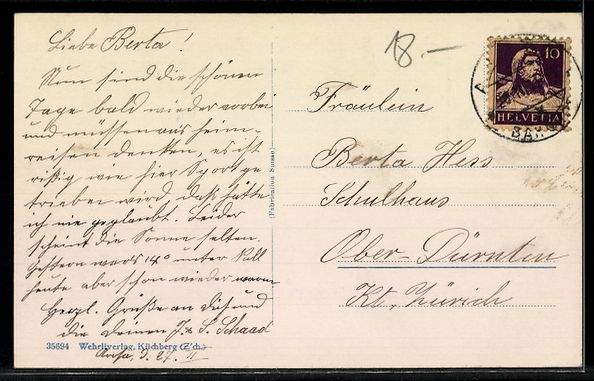 Liebe Berta!
Nun sind die schönen
Tage bald wieder vorbei
und müssen ans heim-
reisen denken, es ist
rissig wie hier Sport ge
trieben wird, das hätte
ich nie geglaubt. Leider
scheint die Sonne selten.
gestern wars 14° unter Null
heute aber schon wieder warm
Herzl. Grüße an dich und
die deinen J. & S. Schaad
Arosa, d. 27. II
35694 Wehrliverlag, Kilchberg (Z'ch.)
(Fabrication Suisse)
18.-
10
HELVETIA
Fräulein
Berta Hess
Schulhaus
Ober-Dürnten
Kt. Zürich